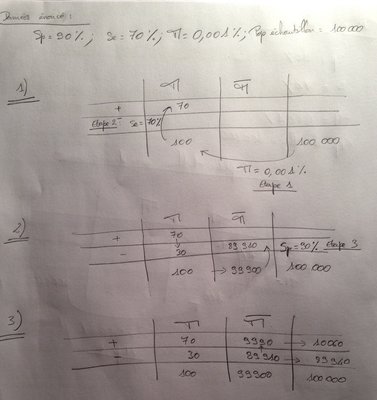 Données énoncé :
Sp = 90 % ; Se = 70 % ; Π = 0,001 % ; Pop échantillon = 100 000
1)
Π Π̅
+ 70
Etape 2 : Se = 70%
100 100.000
Π = 0,001 %
Etape 1
2)
Π Π̅
+ 70
- 30 89 910 Sp = 90% Etape 3
100 → 99900 100 000
3)
Π Π̅
+ 70 9990 → 10060
- 30 89910 → 89940
100 99900 100 000